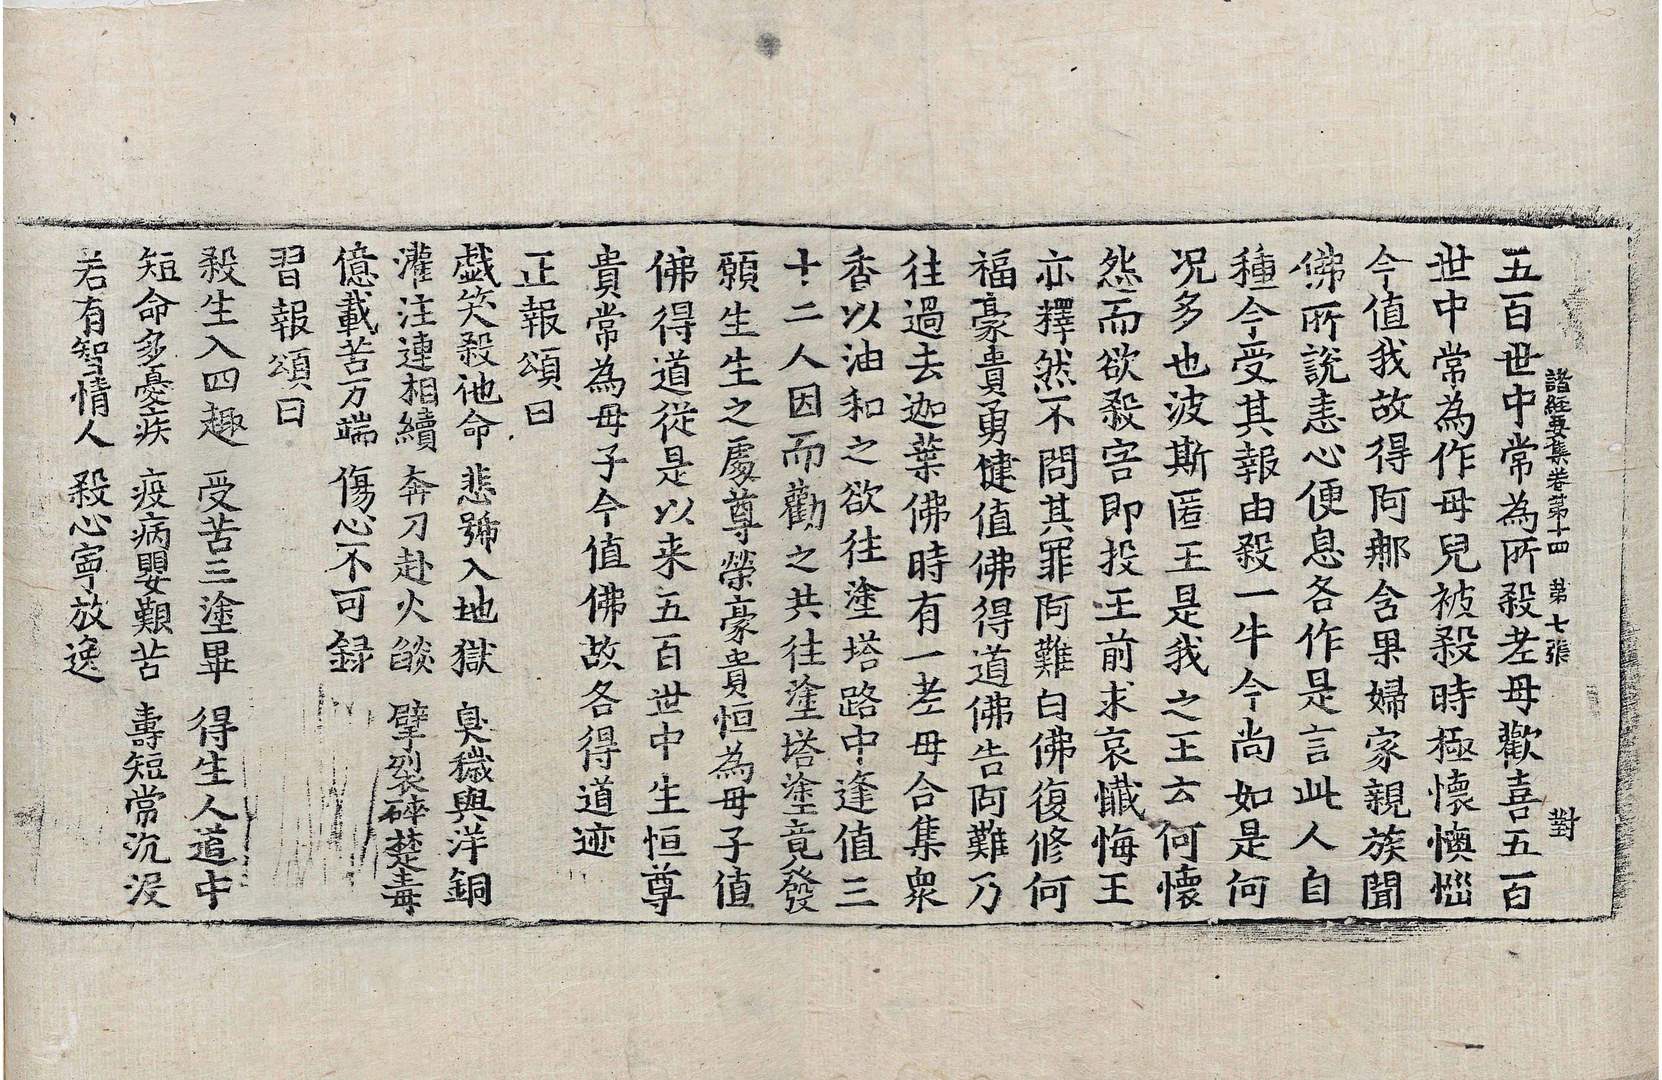 諸經要集卷第十四　第七張　對
五百世中常為所殺老母歡喜五百
世中常為作母兒被殺時極懷懊惱
今值我故得阿那含果婦家親族聞
佛所說恚心便息各作是言此人自
種今受其報由殺一牛今尚如是何
況多也波斯匿王是我之王云何懷
怨而欲殺害即投王前求哀懺悔王
亦釋然不問其罪阿難白佛復修何
福豪貴勇健值佛得道佛告阿難乃
往過去迦葉佛時有一老母合集眾
香以油和之欲往塗塔路中逢值三
十二人因而勸之共往塗塔塗竟發
願生生之處尊榮豪貴恒為母子值
佛得道從是以来五百世中生恒尊
貴常為母子今值佛故各得道迹
正報頌曰
戲笑殺他命　悲號入地獄　臭穢與洋銅
灌注連相續　奔刀赴火焰　擘裂碎楚毒
億載苦万端　傷心不可録
習報頌曰
殺生入四趣　受苦三塗畢　得生人道中
短命多憂疾　疫病嬰艱苦　壽短常沉沒
若有智情人　殺心寧放逸